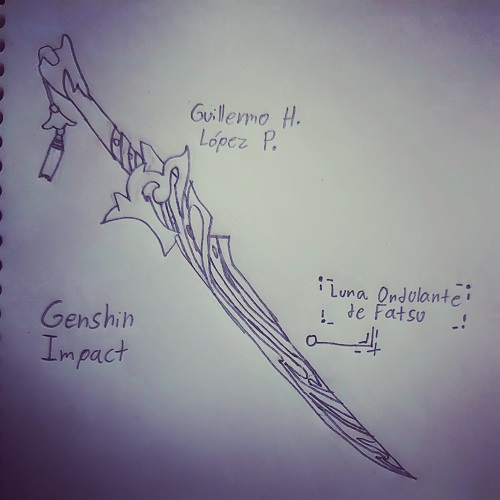 Guillermo H.
López P.
Luna Ondulante
de Fatsu
Genshin
Impact